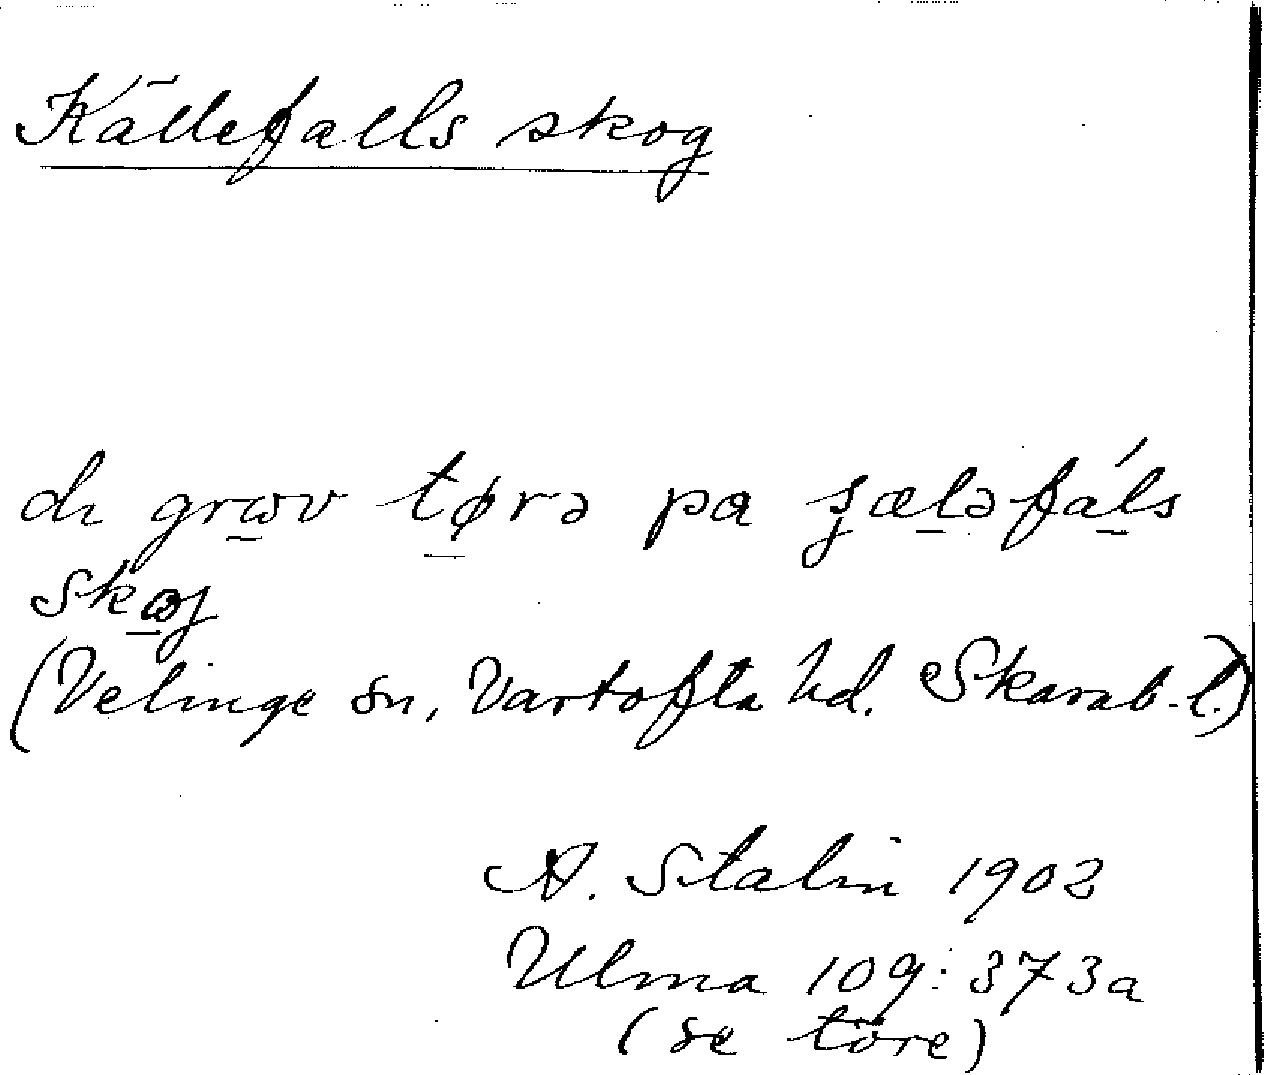 Källefalls skog
dı grɯv tørə pa ʒæləfáls
skɯj
(Velinge sn, Vartofta hd. Skarab.l.)
A. Stalin 1902
Ulma 109:373a
(se töre)